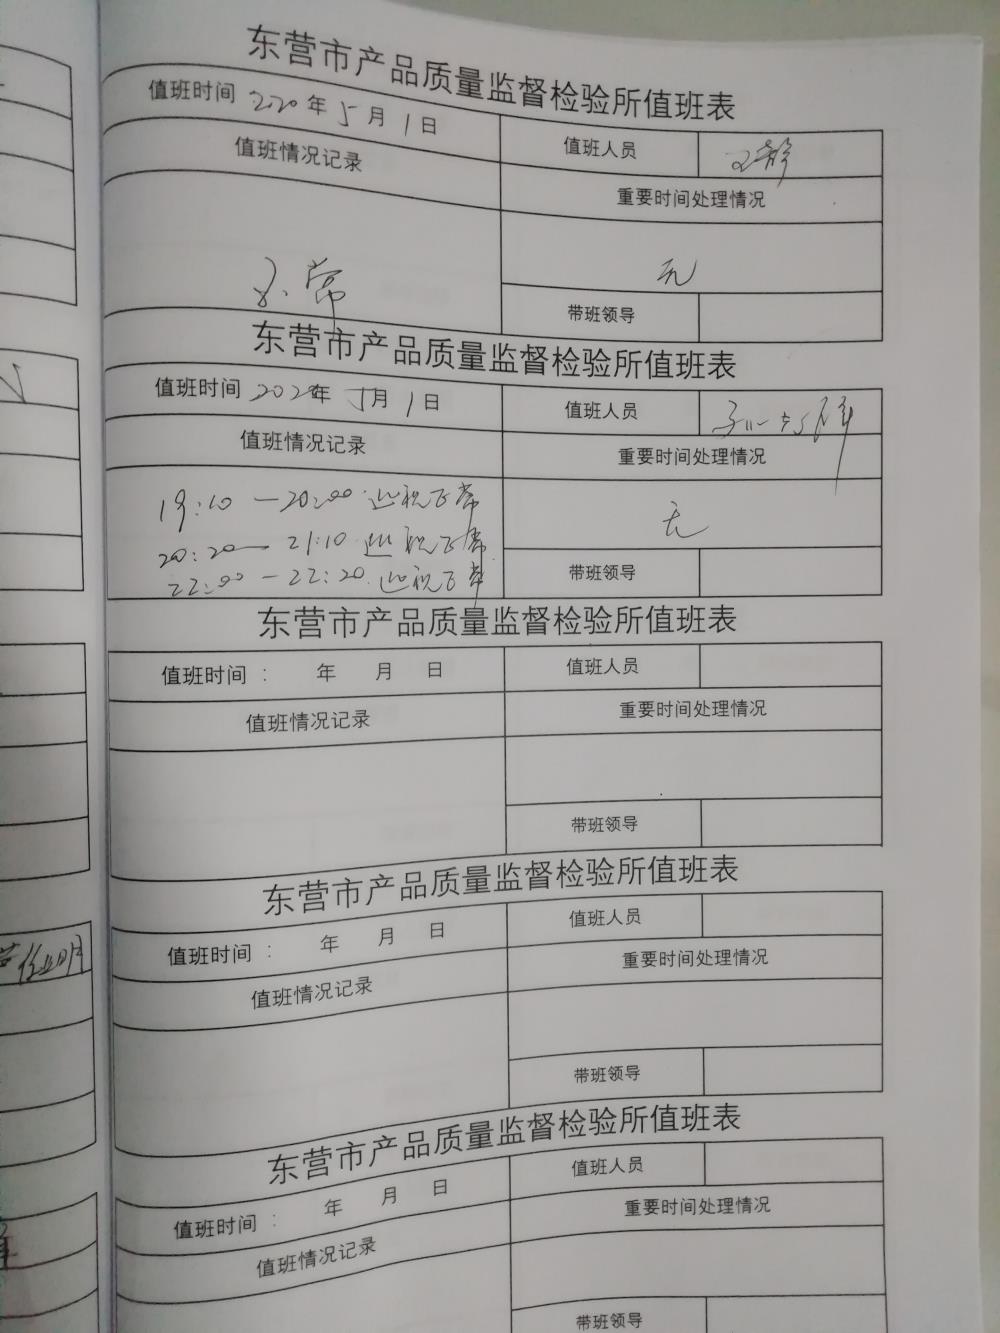 东营市产品质量监督检验所值班表
值班时间 2020年5月1日
值班人员 王静
值班情况记录
重要时间处理情况
正常
无
带班领导
东营市产品质量监督检验所值班表
值班时间 2020年5月1日
值班人员
值班情况记录
重要时间处理情况
19:10—20:00 巡视正常
无
20:20—21:10 巡视正常
22:00—22:20 巡视正常
带班领导
东营市产品质量监督检验所值班表
值班时间: 年 月 日
值班人员
值班情况记录
重要时间处理情况
带班领导
东营市产品质量监督检验所值班表
值班时间: 年 月 日
值班人员
值班情况记录
重要时间处理情况
带班领导
东营市产品质量监督检验所值班表
值班时间: 年 月 日
值班人员
值班情况记录
重要时间处理情况
带班领导